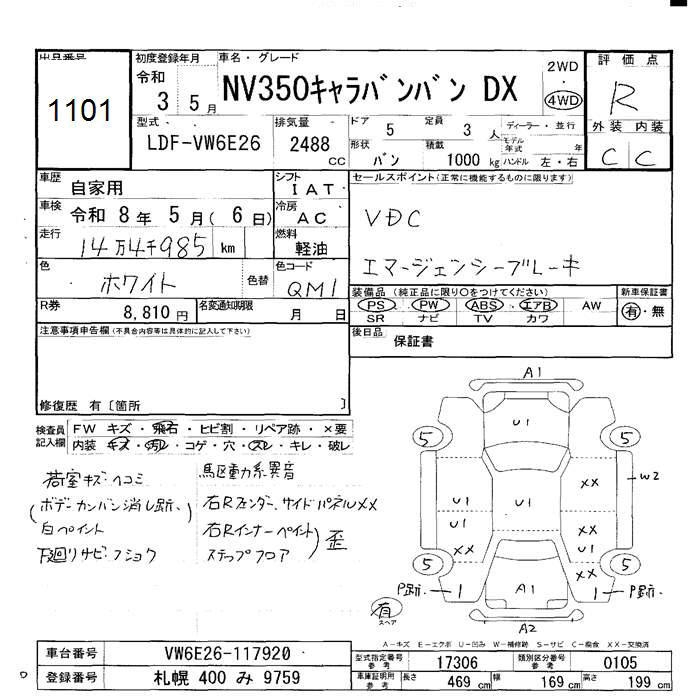 出品番号
1101
初度登録年月
令和
3 5月
車名・グレード
NV350キャラバンバン DX
2WD
・
4WD
評価点
R
外装 内装
C C
型式
LDF-VW6E26
排気量
2488
CC
ドア
5
定員
3
人
ディーラー・並行
形状
バン
積載
1000 kg
モデル年式
年
ハンドル 左・右
車歴
自家用
シフト
IAT
セールスポイント(正常に機能するものに限ります)
車検
令和 8年 5月( 6日)
冷房
AC
VDC
走行
14万4千985 km
燃料
軽油
エマージェンシーブレーキ
色
ホワイト
色替
色コード
QM1
装備品(純正品に限り○をつけてください)
PS PW ABS エアB AW
SR ナビ TV カワ
新車保証書
有・無
R券
8,810円
名変通知期限
月 日
後日品
保証書
注意事項申告欄(不具合内容等は具体的に記入して下さい)
修復歴 有〔箇所 〕
検査員記入欄
FW キズ・飛石・ヒビ割・リペア跡・×要
内装 キズ・汚れ・コゲ・穴・スレ・キレ・破レ
荷室キズ・ヘコミ
(ボデーカンバン消し跡、)
白ペイント
下廻りサビ・フショク
駆動系異音
右Rフェンダー、サイドパネルXX
右Rインナーペイント
ステップフロア
)歪
A1
5
U1
5
XX
W2
U1
U1
U1
XX
XX
XX
5
5
P跡、
1
A1
1
P跡、
A2
有
スペア
A-キズ E-エクボ U-凹み W-補修跡 S-サビ C-腐食 XX-交換済
車台番号
VW6E26-117920
型式指定番号
参考
17306
類別区分番号
参考
0105
登録番号
札幌 400 み 9759
車庫証明用
参考
長さ
469 cm
幅
169 cm
高さ
199 cm